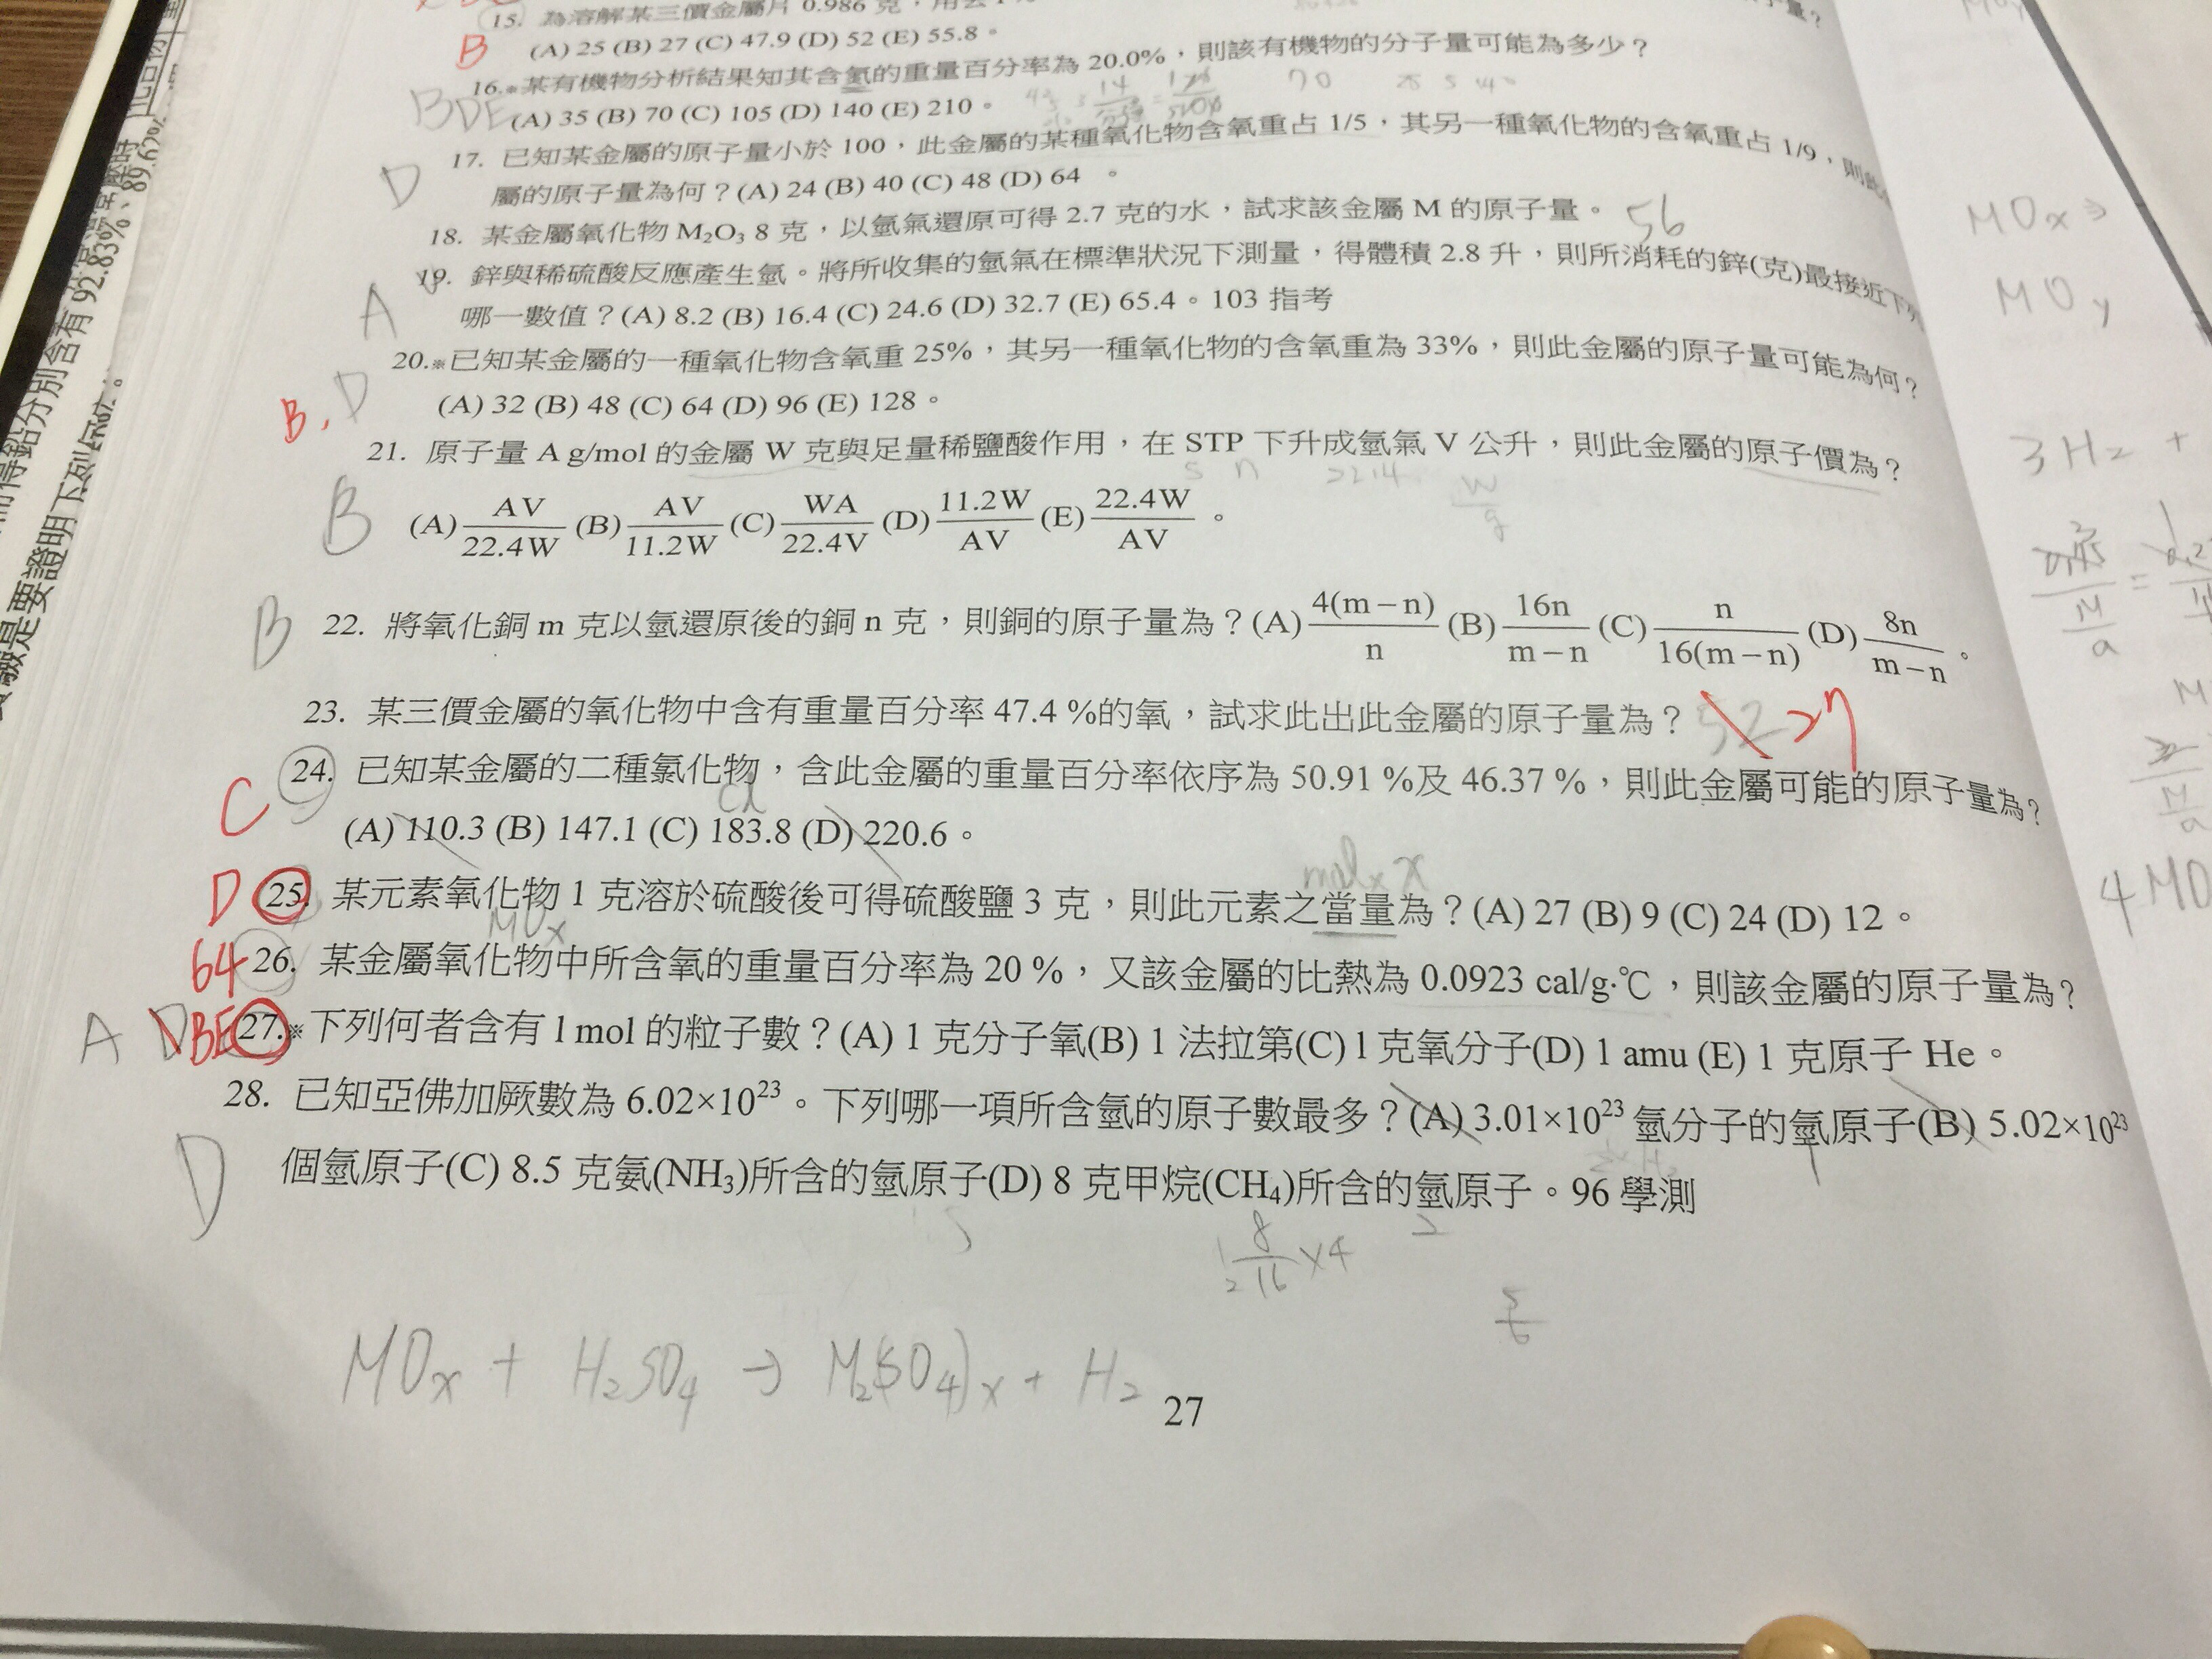 15. 為溶解某三價金屬片 0.986 克，用去
B
(A) 25 (B) 27 (C) 47.9 (D) 52 (E) 55.8。
16.※某有機物分析結果知其含氮的重量百分率為 20.0%，則該有機物的分子量可能為多少？
BDE
(A) 35 (B) 70 (C) 105 (D) 140 (E) 210。
70
17. 已知某金屬的原子量小於 100，此金屬的某種氧化物含氧重占 1/5，其另一種氧化物的含氧重占 1/9，則此
D
屬的原子量為何？(A) 24 (B) 40 (C) 48 (D) 64 。
18. 某金屬氧化物 M₂O₃ 8 克，以氫氣還原可得 2.7 克的水，試求該金屬 M 的原子量。 56
19. 鋅與稀硫酸反應產生氫。將所收集的氫氣在標準狀況下測量，得體積 2.8 升，則所消耗的鋅(克)最接近下列
A
哪一數值？(A) 8.2 (B) 16.4 (C) 24.6 (D) 32.7 (E) 65.4。103 指考
20.※已知某金屬的一種氧化物含氧重 25%，其另一種氧化物的含氧重為 33%，則此金屬的原子量可能為何？
B, D
(A) 32 (B) 48 (C) 64 (D) 96 (E) 128。
21. 原子量 A g/mol 的金屬 W 克與足量稀鹽酸作用，在 STP 下升成氫氣 V 公升，則此金屬的原子價為？
B
(A) AV/22.4W (B) AV/11.2W (C) WA/22.4V (D) 11.2W/AV (E) 22.4W/AV 。
B
22. 將氧化銅 m 克以氫還原後的銅 n 克，則銅的原子量為？(A) 4(m−n)/n (B) 16n/m−n (C) n/16(m−n) (D) 8n/m−n 。
23. 某三價金屬的氧化物中含有重量百分率 47.4 %的氧，試求此出此金屬的原子量為？ 52 27
24. 已知某金屬的二種氯化物，含此金屬的重量百分率依序為 50.91 %及 46.37 %，則此金屬可能的原子量為?
C
Cl
(A) 110.3 (B) 147.1 (C) 183.8 (D) 220.6。
mol × x
D
25. 某元素氧化物 1 克溶於硫酸後可得硫酸鹽 3 克，則此元素之當量為？(A) 27 (B) 9 (C) 24 (D) 12。
MOx
64
26. 某金屬氧化物中所含氧的重量百分率為 20 %，又該金屬的比熱為 0.0923 cal/g·℃，則該金屬的原子量為?
A D BE
27.※下列何者含有 1 mol 的粒子數？(A) 1 克分子氧(B) 1 法拉第(C) 1 克氧分子(D) 1 amu (E) 1 克原子 He。
28. 已知亞佛加厥數為 6.02×10²³。下列哪一項所含氫的原子數最多？(A) 3.01×10²³ 氫分子的氫原子(B) 5.02×10²³
D
個氫原子(C) 8.5 克氨(NH₃)所含的氫原子(D) 8 克甲烷(CH₄)所含的氫原子。96 學測
8/16 ×4
MOx + H₂SO₄ → M₂(SO₄)x + H₂
27
MOx
MOy
3H₂ +
4MO